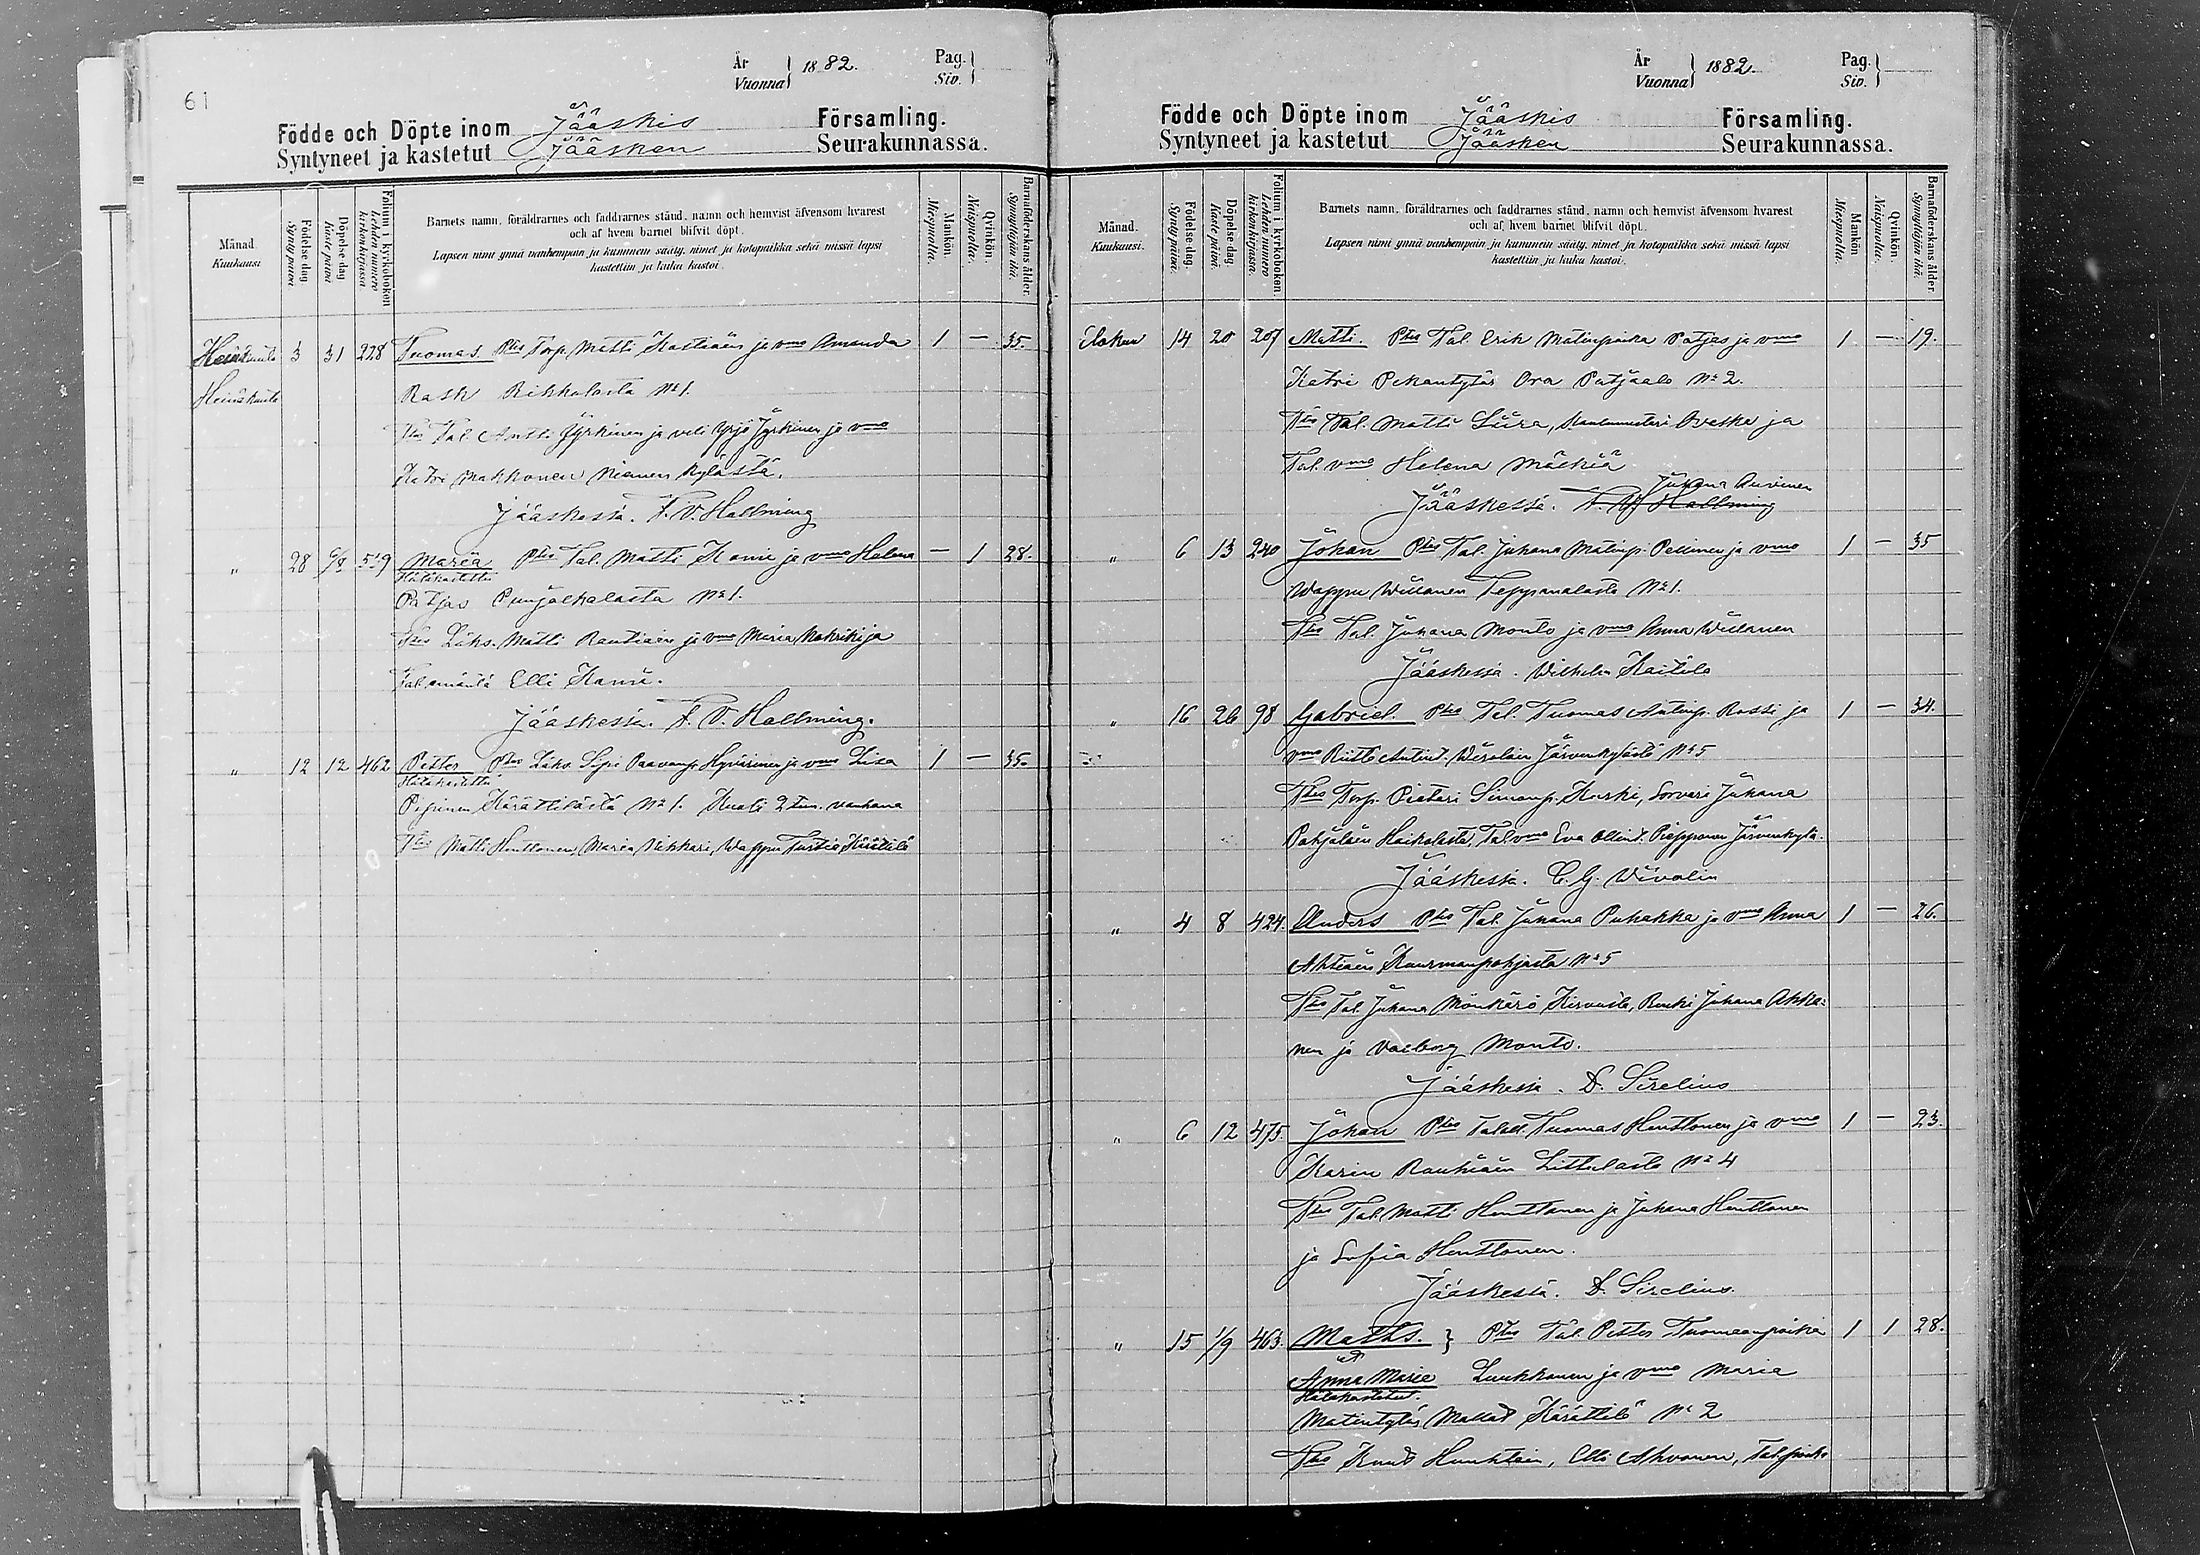 61
År
Vuonna } 1882.
Pag.
Siv. }
Födde och Döpte inom Jääskis Församling.
Syntyneet ja kastetut Jääsken Seurakunnassa.
Månad. Kuukausi
Födelse dag Syntypäivä
Döpelse dag Kastepäivä
Folium i kyrkoboken Lehden numero kirkonkirjassa
Barnets namn, föräldrarnes och faddrarnes stånd, namn och hemvist äfvensom hvarest
och af hvem barnet blifvit döpt.
Lapsen nimi ynnä vanhempain ja kummein sääty, nimet ja kotopaikka sekä missä lapsi
kastettiin ja kuka kastoi.
Mankön. Miespuolia.
Qvinkön. Naispuolia.
Barnaföderskans ålder. Synnyttäjän ikä.
3 31 228 Tuomas Torp. Matti Kostiain ja vmo Amanda 1 — 35.
Heinäkuulta Rask Rikkolasta No 1.
Tal. Antti Jyrkinen ja veli Yrjö Jyrkinen ja vmo
Katri Makkonen Niemen kylästä.
Jääskessä. F. V. Hallming
" 28 6/8 519 Maria Tal. Matti Kanu ja vmo Helena — 1 28.
Hätäkastettu
Patjas Punjalkalasta No 1.
Läks. Matti Rautiain ja vmo Maria ja
Tal. emäntä Elli
Jääskessä. F. V. Hallming.
" 12 12 462 Petter Läks. Sipi Paavonp. Hyvärinen ja vmo Lisa 1 — 35.
Hätäkastettu
Pipinen Kärättilästä No 1. Kuoli 2 tun. vanhana
Matti Henttonen, Maria Nikkari, Wappu Turtia
År
Vuonna } 1882.
Pag.
Siv. }
Födde och Döpte inom Jääskis Församling.
Syntyneet ja kastetut Jääsken Seurakunnassa.
Månad. Kuukausi.
Födelse-dag. Syntypäivä.
Döpelse-dag Kaste päivä.
Folium i kyrkoboken. Lehden numero kirkonkirjassa.
Barnets namn, föräldrarnes och faddrarnes stånd, namn och hemvist äfvensom hvarest
och af hvem barnet blifvit döpt.
Lapsen nimi ynnä vanhempain ja kummein sääty, nimet ja kotopaikka sekä missä lapsi
kastettiin ja kuka kastoi.
Mankön Miespuolia.
Qvinkön. Naispuolia.
Barnaföderskans ålder. Synnyttäjän ikä.
Elokuu 14 20 207 Matti. Tal. Erik Matinpoika Patjas ja vmo 1 — 19.
Katri Pekantytär Ora Patjaala No 2.
Tal. Matti Liira, ja
Tal. vmo Helena
Juhana Auvinen
Jääskessä. F. V. Hallming
" 6 13 240 Johan Tal. Juhana Matinp. Pellinen ja vmo 1 — 35
Wappu Willanen Teppanalasta No 1.
Tal. Juhana Monto ja vmo Anna Willanen
Jääskessä. Wilhelm Kaitila
" 16 26 98 Gabriel. Tal. Tuomas Antinp. Rossi ja 1 — 34.
vmo Riitta Antint. Järvenkylästä No 5
Torp. Pietari Simonp. Koski, Sorvari Juhana
Pohjalain Kaikolasta, Tal. vmo Eva Ollint. Pieppanen Järvenkylä.
Jääskessä. C. G. Wivolin
" 4 8 424. Anders Tal. Juhana Puhakka ja vmo Anna 1 — 26.
Ahtiain Kuurmanpohjasta No 5
Tal. Juhana Mönkärö Kirvusta, Renki Juhana Akka-
nen ja Valborg Monto.
Jääskessä. D. Sirelius
" 6 12 475. Johan Tuomas Henttonen ja vmo 1 — 23.
Karin Rautiain Littulasta No 4
Tal. Matti Henttonen ja Juhana Henttonen
ja Sofia Henttonen.
Jääskessä. D. Sirelius.
" 15 1/9 463. Maths. } Tal. Petter Tuomaanpoika 1 1 28.
Anna Maria Luukkanen ja vmo Maria
Hätäkastetut.
Matintytär Kärättilä No 2
Knut Elli Ahvonen,